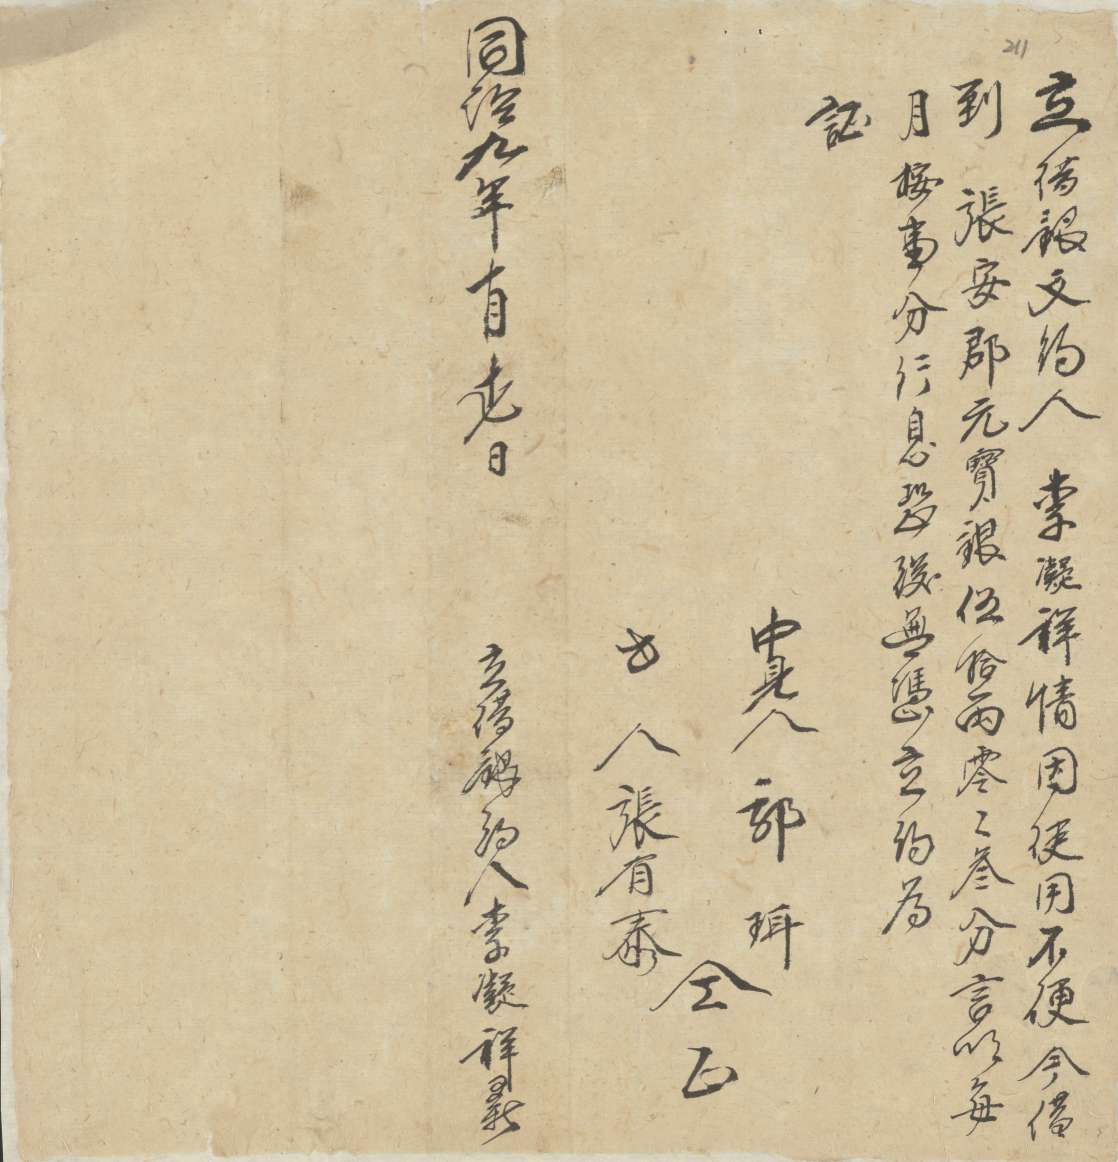 211
立借銀文約人 李凝祥情因使用不便今借
到 張安郡元寶銀伍拾兩零々叁分言明每
月按壹分行息恐後無憑立約為
証
中見人 郭珥
代人張有泰
仝正
立借銀約人李凝祥
同治九年 月 日